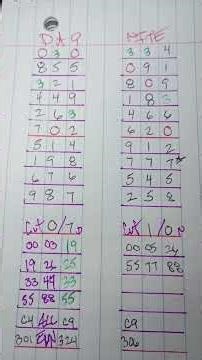 DAY
0 3 0
8 5 5
3 2 1
4 4 9
2 6 3
7 0 2
5 1 4
1 9 8
6 7 6
9 8 7
0/7
00 03 19
19 26
33 44 33
55 88 55
C4 C9
301 324
NITE
3 3 4
0 9 1
8 0 9
1 8
4 6 6
6 2 0
9 1 2
7 7 7
5 4 5
2 5 8
1/0
00 05 26
55 77 88
C9
306